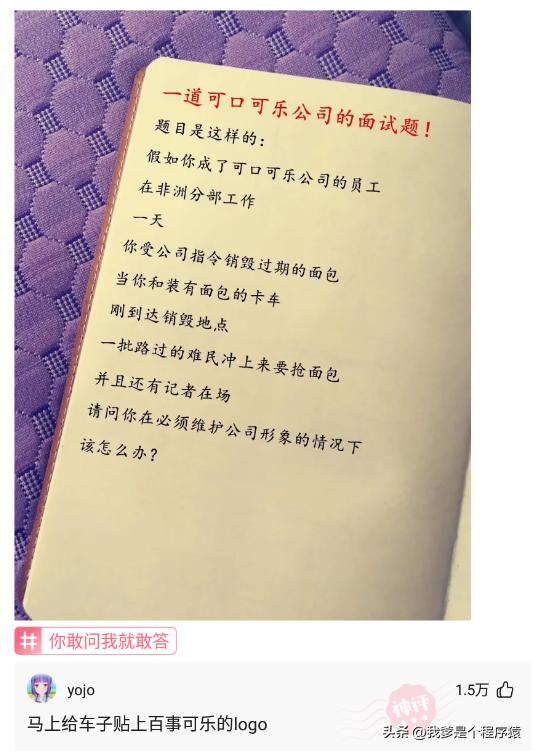 一道可口可乐公司的面试题！
题目是这样的：
假如你成了可口可乐公司的员工
在非洲分部工作
一天
你受公司指令销毁过期的面包
当你和装有面包的卡车
刚到达销毁地点
一批路过的难民冲上来要抢面包
并且还有记者在场
请问你在必须维护公司形象的情况下
该怎么办？
# 你敢问我就敢答
yojo
1.5万
神评
马上给车子贴上百事可乐的logo
头条 @我爹是个程序猿